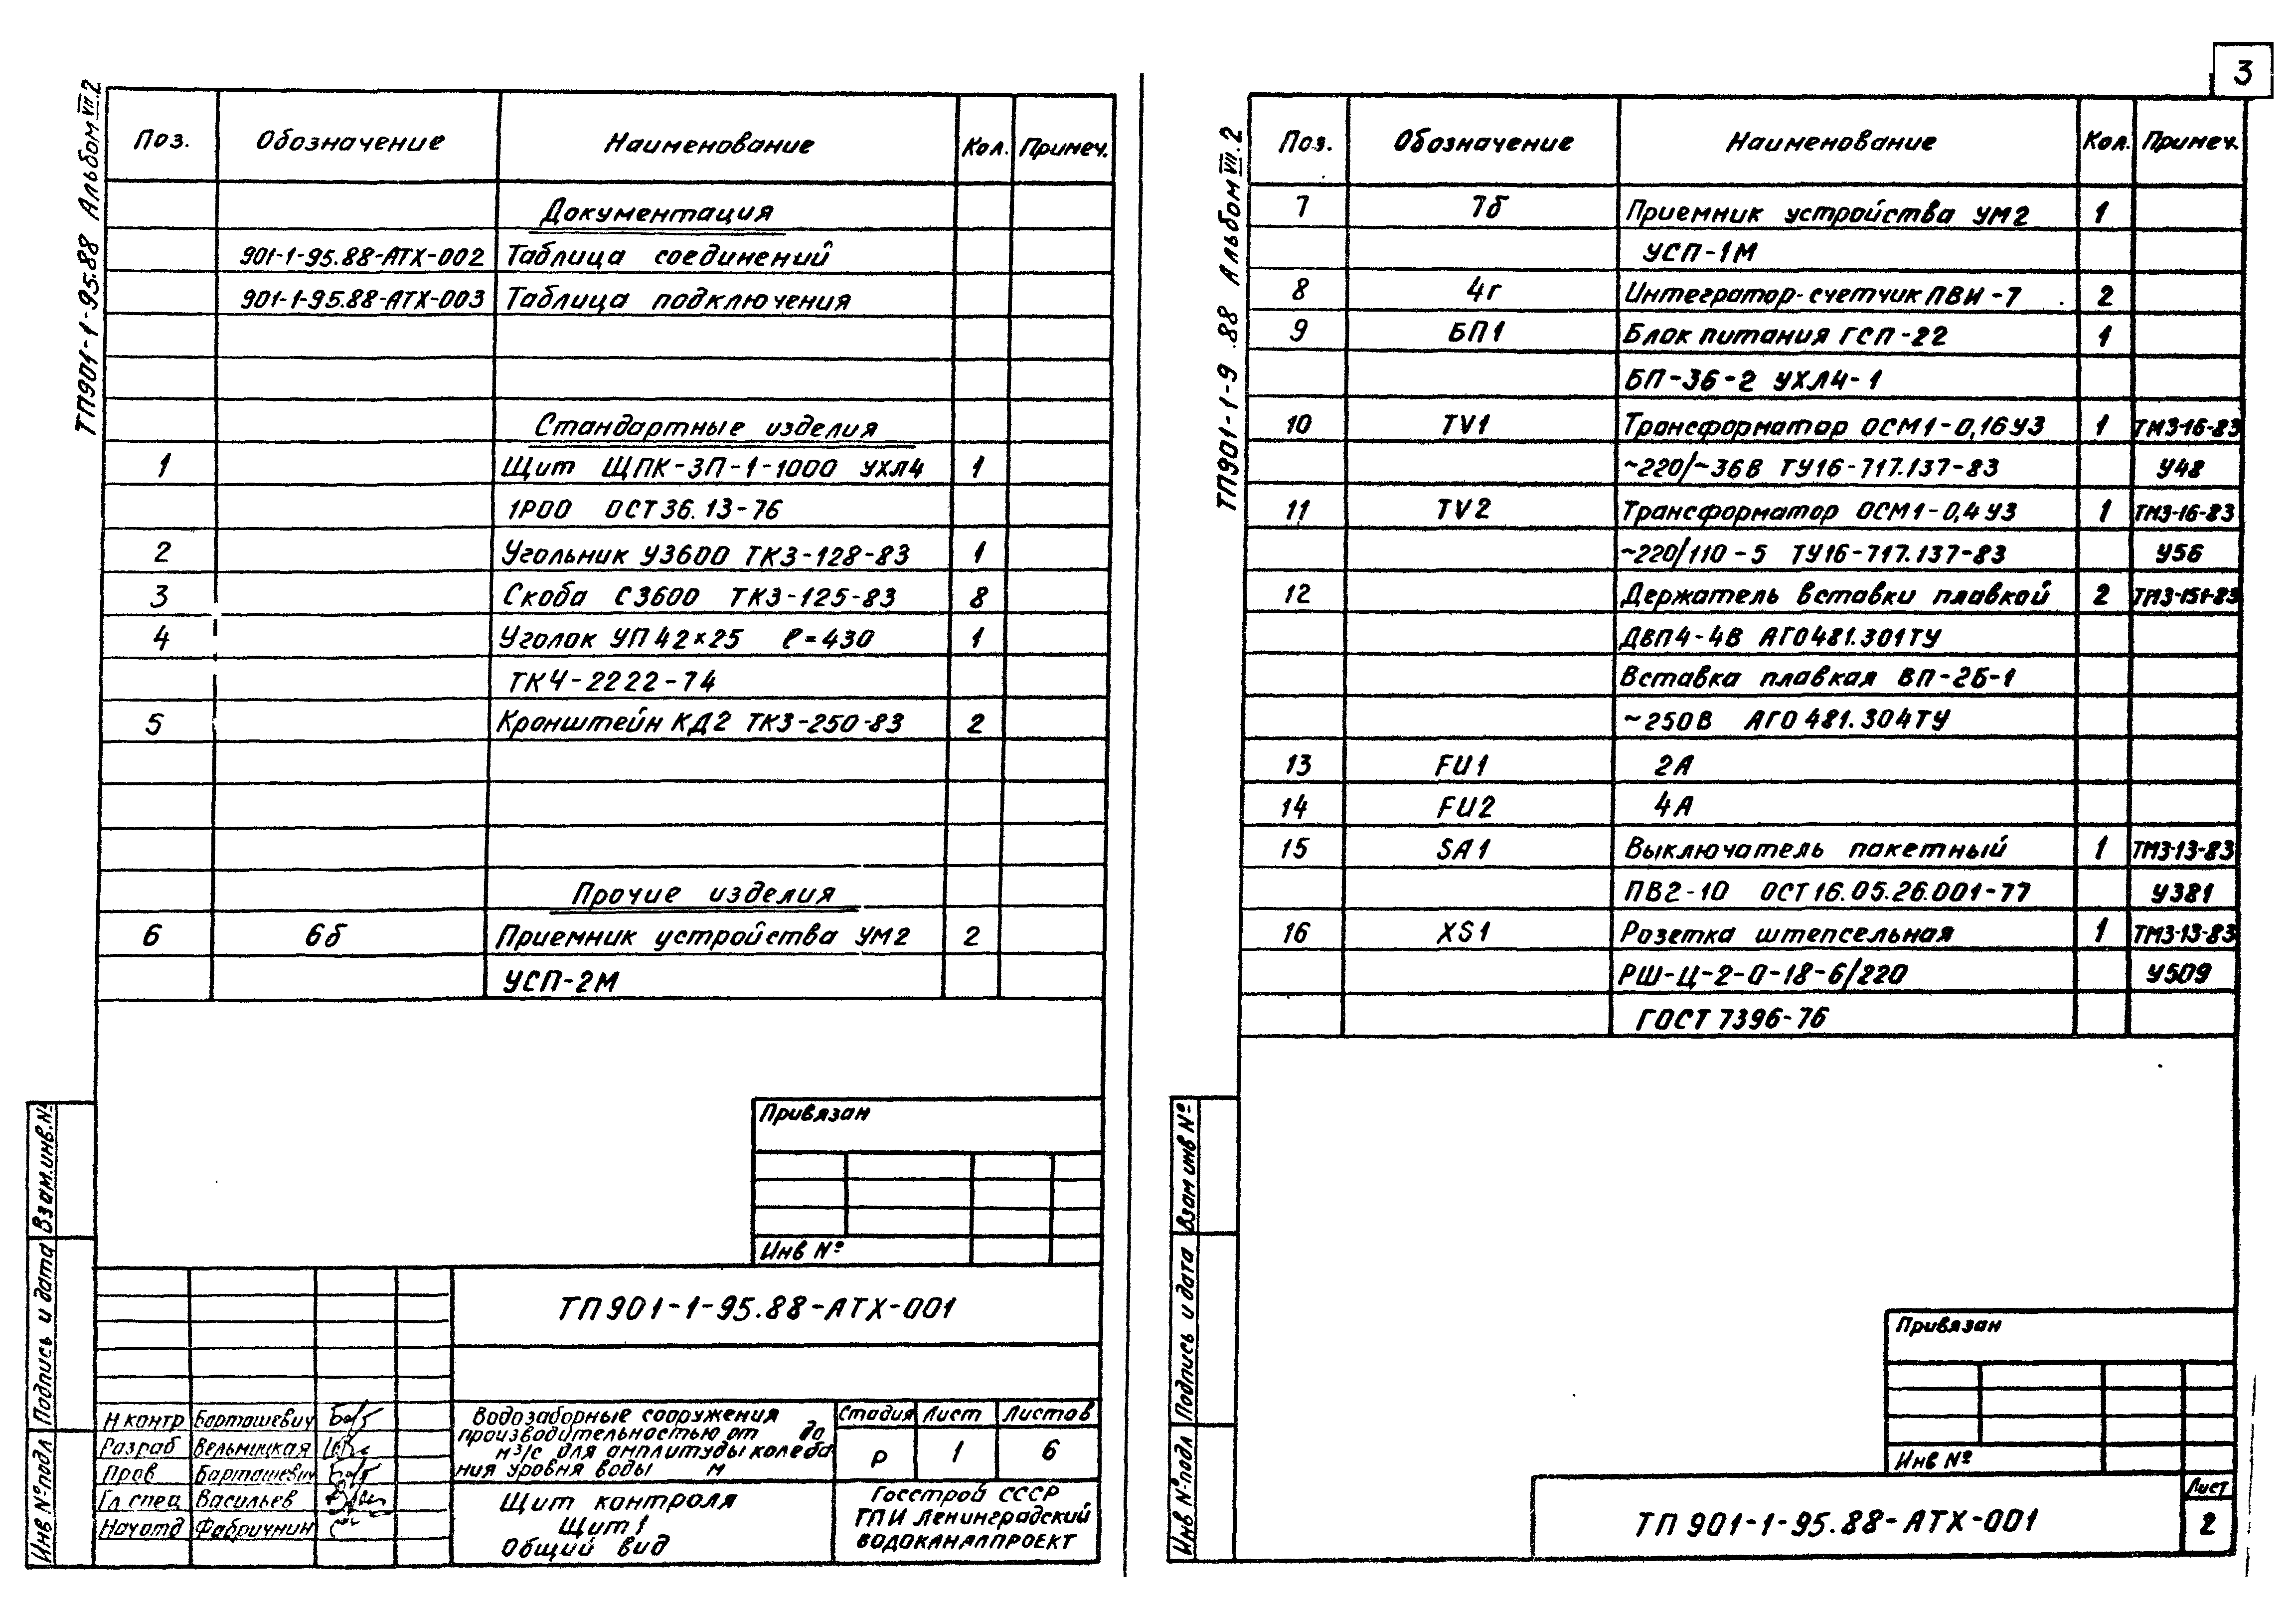 3
ТП901-1-95.88 Альбом VII.2
Поз. Обозначение Наименование Кол. Примеч.
Документация
901-1-95.88-АТХ-002 Таблица соединений
901-1-95.88-АТХ-003 Таблица подключения
Стандартные изделия
1 Щит ЩПК-ЗП-1-1000 УХЛ4 1
1Р00 ОСТ36.13-76
2 Угольник У3600 ТК3-128-83 1
3 Скоба С3600 ТК3-125-83 8
4 Уголок УП42×25 ℓ=430 1
ТК4-2222-74
5 Кронштейн КД2 ТК3-250-83 2
Прочие изделия
6 6б Приемник устройства УМ2 2
УСП-2М
Привязан
Инв №
ТП901-1-95.88-АТХ-001
Н контр Барташевич
Разраб Вельмицкая
Пров Барташевич
Гл спец Васильев
Нач отд Фабричнин
Водозаборные сооружения
производительностью от до
м³/с для амплитуды колеба
ния уровня воды м
Стадия Лист Листов
Р 1 6
Щит контроля
Щит 1
Общий вид
Госстрой СССР
ГПИ Ленинградский
ВОДОКАНАЛПРОЕКТ
Взам.инв.№
Подпись и дата
Инв №подл
ТП901-1-9 .88 Альбом VII.2
Поз. Обозначение Наименование Кол. Примеч.
7 7б Приемник устройства УМ2 1
УСП-1М
8 4г Интегратор-счетчик ПВИ-7 2
9 БП1 Блок питания ГСП-22 1
БП-36-2 УХЛ4-1
10 TV1 Трансформатор ОСМ1-0,16У3 1 ТМ3-16-83
~220/~36В ТУ16-717.137-83 У48
11 TV2 Трансформатор ОСМ1-0,4У3 1 ТМ3-16-83
~220/110-5 ТУ16-717.137-83 У56
12 Держатель вставки плавкой 2 ТМ3-151-83
ДВП4-4В АГ0481.301ТУ
Вставка плавкая ВП-2Б-1
~250В АГ0481.304ТУ
13 FU1 2А
14 FU2 4А
15 SA1 Выключатель пакетный 1 ТМ3-13-83
ПВ2-10 ОСТ16.05.26.001-77 У381
16 XS1 Розетка штепсельная 1 ТМ3-13-83
РШ-Ц-2-0-18-6/220 У509
ГОСТ 7396-76
Привязан
Инв №
ТП 901-1-95.88-АТХ-001
Лист
2
Взам инв №
Подпись и дата
Инв №подл